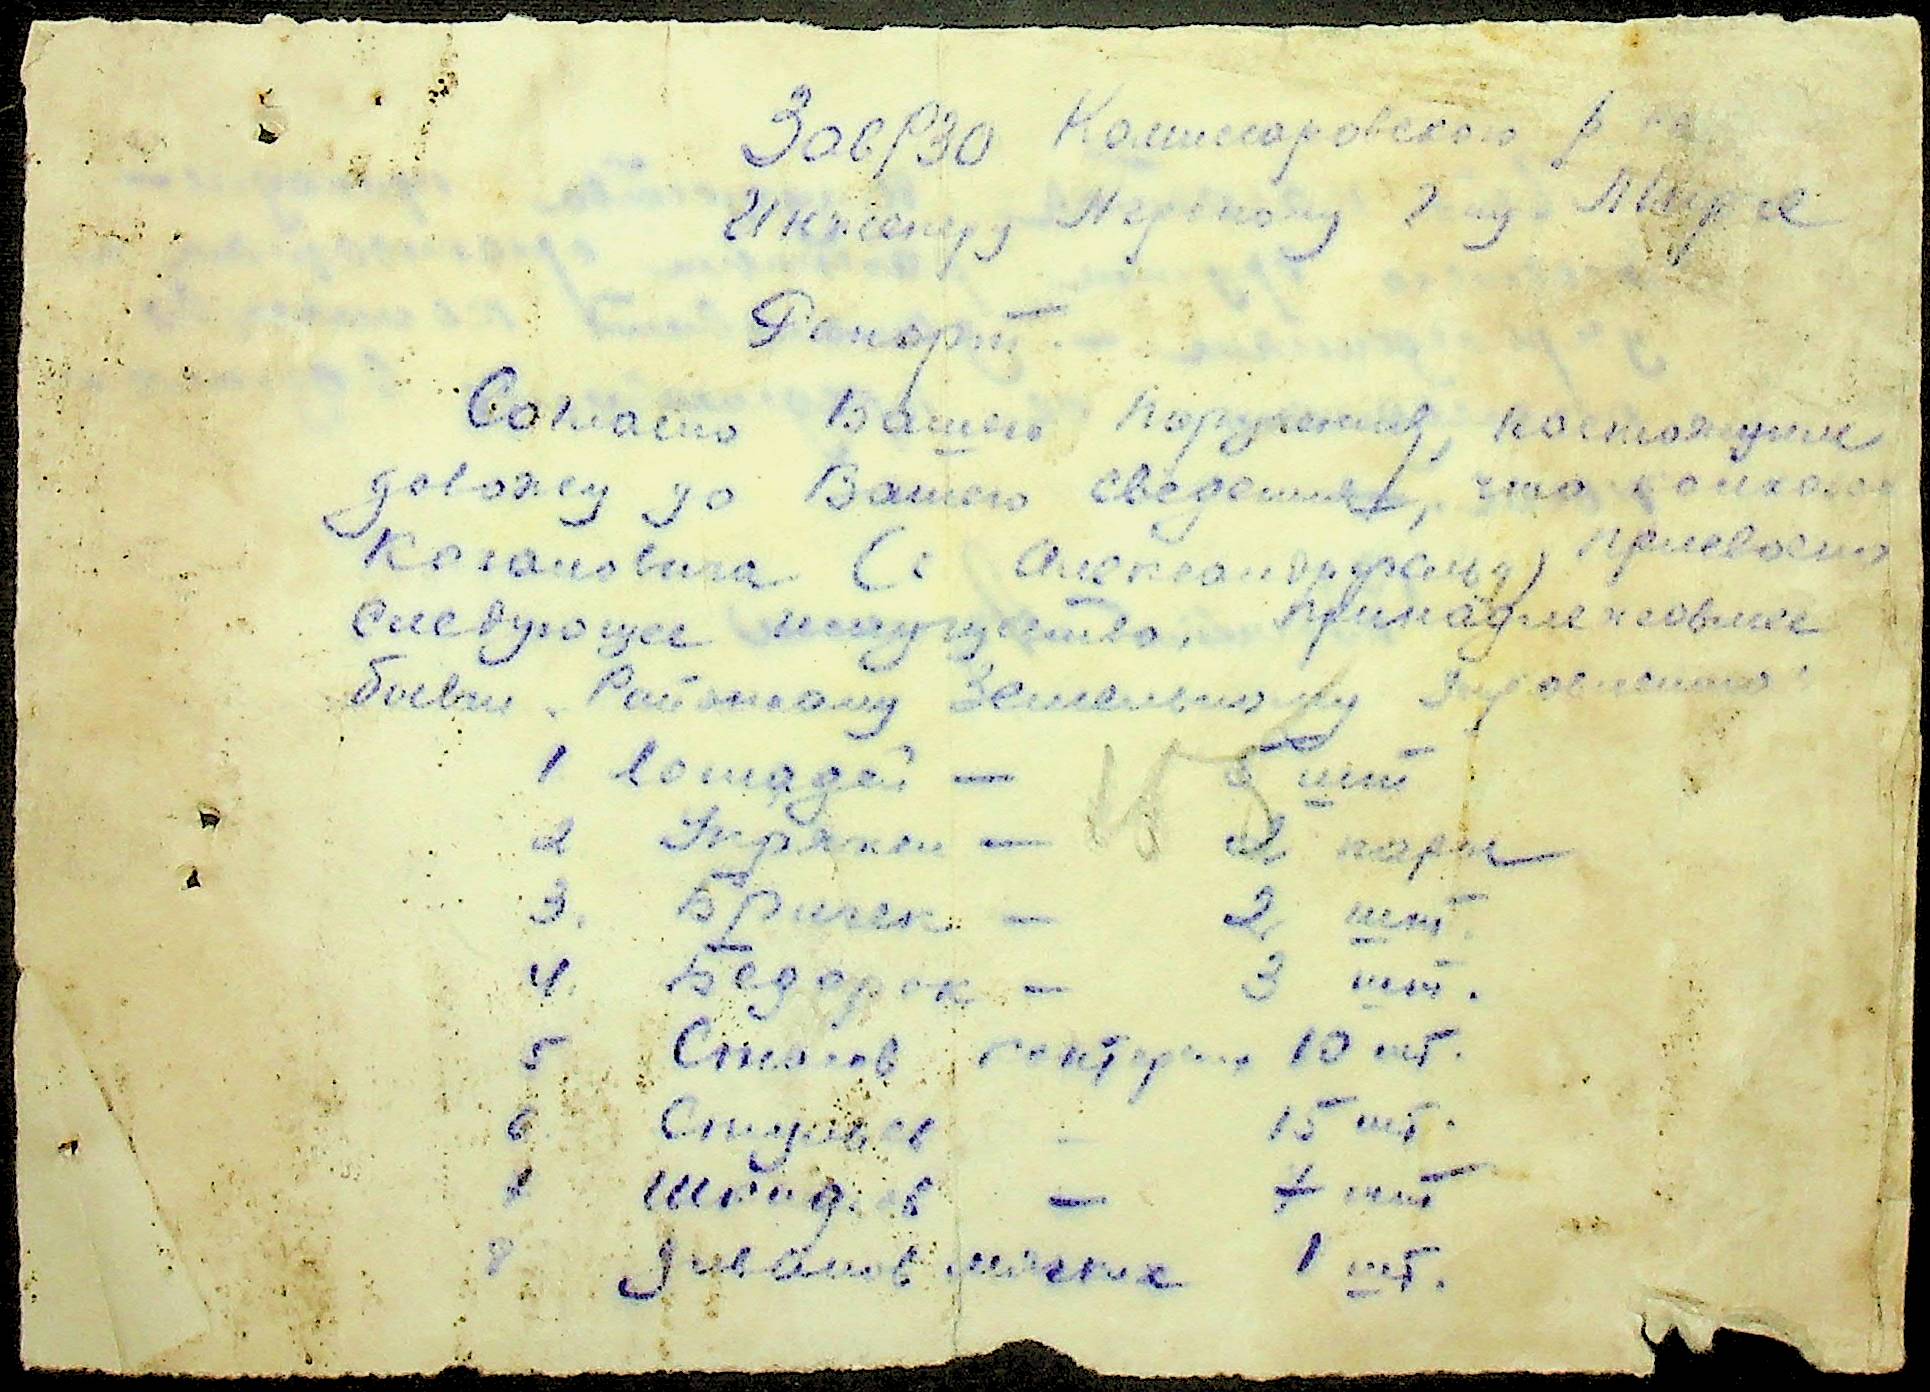 ЗавРЗО Комиссаровского р-на
Инженеру Мерному
Рапорт
Согласно Вашего поручения, настоящим
доложу до Вашего сведения, что колхозом
Кагановича (с Александрфельд) присвоено
следующее имущество, принадлежавшее
бывш. Районному Земельному Управлению:
1 лошадей — 5 шт
2 Упряжи — 2 пары
3. Бричек — 2 шт.
4. Бедарок — 3 шт.
5 Столов контор. 10 шт.
6. Стульев — 15 шт.
7 Шкафов — 7 шт
8 диванов мягких 1 шт.